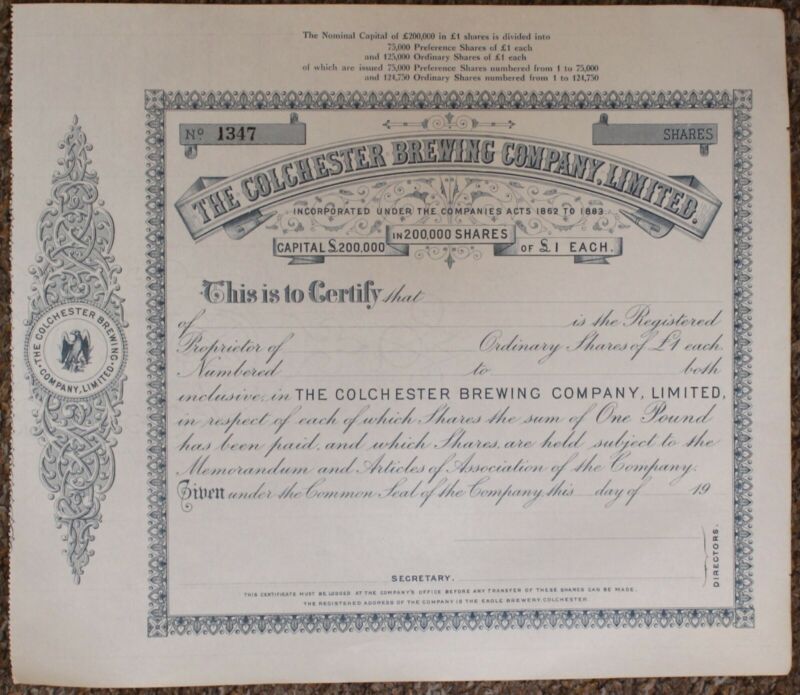 The Nominal Capital of £200,000 in £1 shares is divided into
75,000 Preference Shares of £1 each
and 125,000 Ordinary Shares of £1 each
of which are issued 75,000 Preference Shares numbered from 1 to 75,000
and 124,750 Ordinary Shares numbered from 1 to 124,750
No 1347
SHARES
THE COLCHESTER BREWING COMPANY, LIMITED.
INCORPORATED UNDER THE COMPANIES ACTS 1862 TO 1883.
CAPITAL £200,000 IN 200,000 SHARES OF £1 EACH.
This is to Certify that
of is the Registered
Proprietor of Ordinary Shares of £1 each.
Numbered to both
inclusive, in THE COLCHESTER BREWING COMPANY, LIMITED,
in respect of each of which Shares the sum of One Pound
has been paid, and which Shares, are held subject to the
Memorandum and Articles of Association of the Company.
Given under the Common Seal of the Company this day of 19
DIRECTORS.
SECRETARY.
THIS CERTIFICATE MUST BE LODGED AT THE COMPANY'S OFFICE BEFORE ANY TRANSFER OF THESE SHARES CAN BE MADE.
THE REGISTERED ADDRESS OF THE COMPANY IS THE EAGLE BREWERY, COLCHESTER.
THE COLCHESTER BREWING
COMPANY, LIMITED.